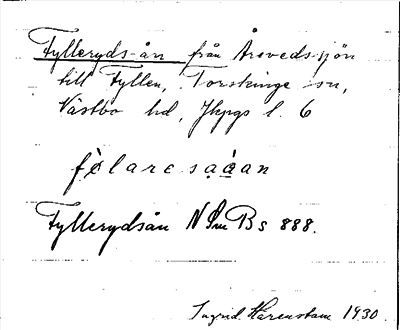 Fylleryds-ån från Årevedssjön
till Fyllen, Torskinge sn,
Västbo hd, Jkpgs l. 6
Fyllerydsån N Sm Bs 888.
Ingrid Härenstam 1930